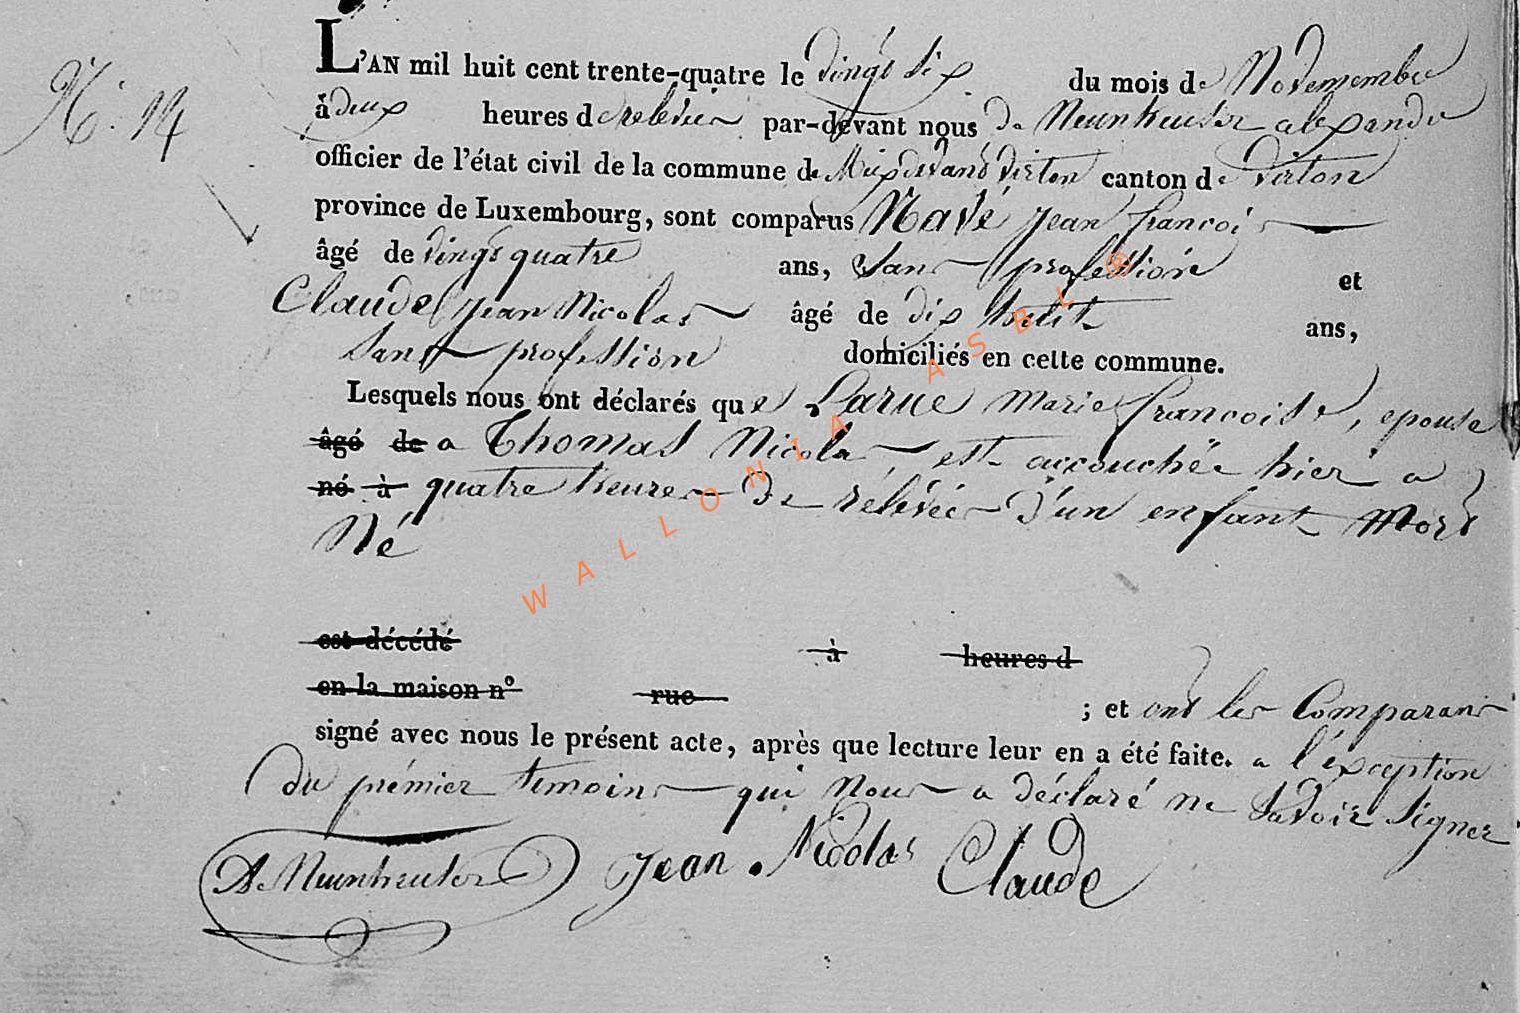 N.° 14
L'AN mil huit cent trente-quatre le vingt six du mois de Novemembre
à deux heures de relevée par-devant nous De Neunheuser alexandre
officier de l'état civil de la commune de Meix devant virton canton de virton
province de Luxembourg, sont comparus Navé jean francois
âgé de vingt quatre ans, sans profession et
Claude jean Nicolas âgé de dix huit ans,
sans profession domiciliés en cette commune.
Lesquels nous ont déclarés que Larue marie francoise, epouse
âgé de a Thomas Nicolas, est accouchée hier a
né à quatre heures de rélévée d'un enfant mort
Né
est décédé à heures d
en la maison n° rue ; et ont les Comparans
signé avec nous le présent acte, après que lecture leur en a été faite. a l'éxception
du prémier temoins qui nous a déclaré ne savoir signer
Jean Nicolas Claude
WALLONIA ASBL ©